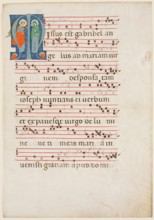 Missus est gabriel an
gelus ad mariam uir
ginem desponsatam
ioseph nuntians ei uerbum
et expauescit uirgo de lu mi
ne ne ti meas mari a in
uenisti gratiam apud domi